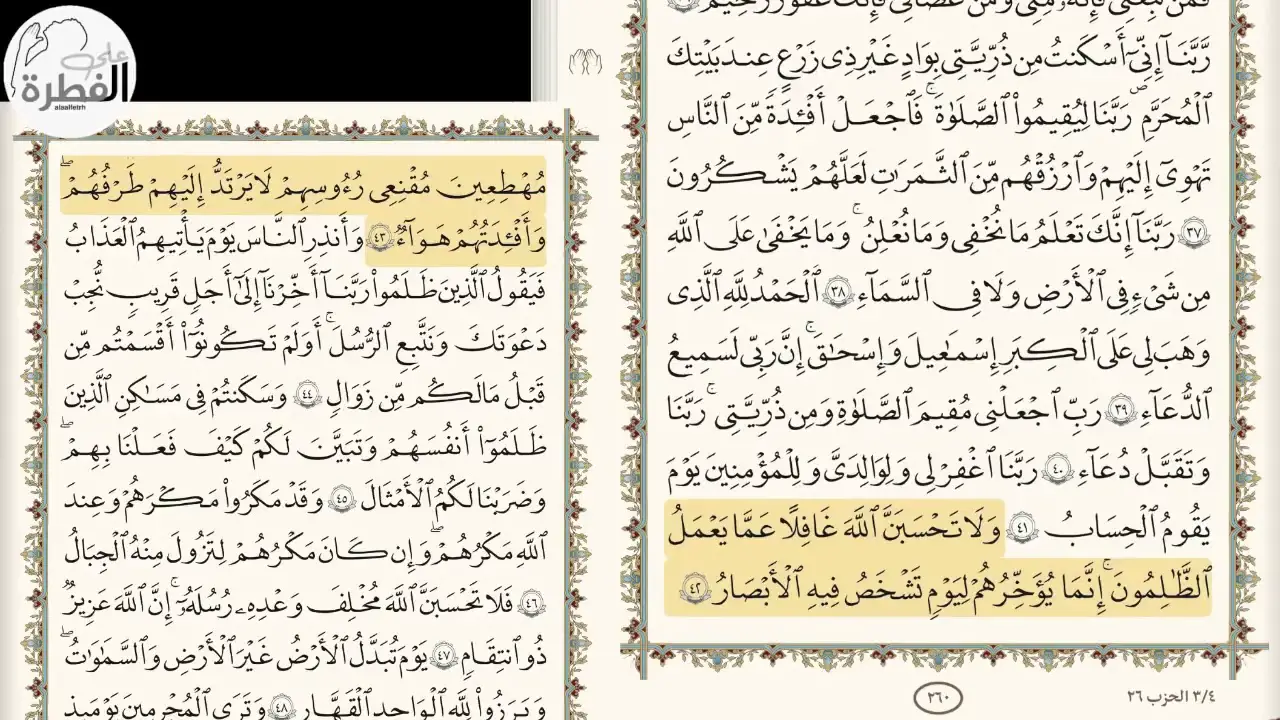 فَمَن تَبِعَنِى فَإِنَّهُۥ مِنِّى وَمَنْ عَصَانِى فَإِنَّكَ غَفُورٌ رَّحِيمٌ ٣٦
رَّبَّنَآ إِنِّىٓ أَسْكَنتُ مِن ذُرِّيَّتِى بِوَادٍ غَيْرِ ذِى زَرْعٍ عِندَ بَيْتِكَ
ٱلْمُحَرَّمِ رَبَّنَا لِيُقِيمُوا۟ ٱلصَّلَوٰةَ فَٱجْعَلْ أَفْـِٔدَةً مِّنَ ٱلنَّاسِ
تَهْوِىٓ إِلَيْهِمْ وَٱرْزُقْهُم مِّنَ ٱلثَّمَرَٰتِ لَعَلَّهُمْ يَشْكُرُونَ
٣٧ رَبَّنَآ إِنَّكَ تَعْلَمُ مَا نُخْفِى وَمَا نُعْلِنُ ۗ وَمَا يَخْفَىٰ عَلَى ٱللَّهِ
مِن شَىْءٍ فِى ٱلْأَرْضِ وَلَا فِى ٱلسَّمَآءِ ٣٨ ٱلْحَمْدُ لِلَّهِ ٱلَّذِى
وَهَبَ لِى عَلَى ٱلْكِبَرِ إِسْمَٰعِيلَ وَإِسْحَٰقَ ۚ إِنَّ رَبِّى لَسَمِيعُ
ٱلدُّعَآءِ ٣٩ رَبِّ ٱجْعَلْنِى مُقِيمَ ٱلصَّلَوٰةِ وَمِن ذُرِّيَّتِى ۚ رَبَّنَا
وَتَقَبَّلْ دُعَآءِ ٤٠ رَبَّنَا ٱغْفِرْ لِى وَلِوَٰلِدَىَّ وَلِلْمُؤْمِنِينَ يَوْمَ
يَقُومُ ٱلْحِسَابُ ٤١ وَلَا تَحْسَبَنَّ ٱللَّهَ غَٰفِلًا عَمَّا يَعْمَلُ
ٱلظَّٰلِمُونَ ۚ إِنَّمَا يُؤَخِّرُهُمْ لِيَوْمٍ تَشْخَصُ فِيهِ ٱلْأَبْصَٰرُ ٤٢
٣/٤ الحزب ٢٦
٢٦٠
على
الفطرة
alaalfetrh
مُهْطِعِينَ مُقْنِعِى رُءُوسِهِمْ لَا يَرْتَدُّ إِلَيْهِمْ طَرْفُهُمْ ۖ
وَأَفْـِٔدَتُهُمْ هَوَآءٌ ٤٣ وَأَنذِرِ ٱلنَّاسَ يَوْمَ يَأْتِيهِمُ ٱلْعَذَابُ
فَيَقُولُ ٱلَّذِينَ ظَلَمُوا۟ رَبَّنَآ أَخِّرْنَآ إِلَىٰٓ أَجَلٍ قَرِيبٍ نُّجِبْ
دَعْوَتَكَ وَنَتَّبِعِ ٱلرُّسُلَ ۗ أَوَلَمْ تَكُونُوٓا۟ أَقْسَمْتُم مِّن
قَبْلُ مَا لَكُم مِّن زَوَالٍ ٤٤ وَسَكَنتُمْ فِى مَسَٰكِنِ ٱلَّذِينَ
ظَلَمُوٓا۟ أَنفُسَهُمْ وَتَبَيَّنَ لَكُمْ كَيْفَ فَعَلْنَا بِهِمْ ۖ
وَضَرَبْنَا لَكُمُ ٱلْأَمْثَالَ ٤٥ وَقَدْ مَكَرُوا۟ مَكْرَهُمْ وَعِندَ
ٱللَّهِ مَكْرُهُمْ ۖ وَإِن كَانَ مَكْرُهُمْ لِتَزُولَ مِنْهُ ٱلْجِبَالُ
٤٦ فَلَا تَحْسَبَنَّ ٱللَّهَ مُخْلِفَ وَعْدِهِۦ رُسُلَهُۥٓ ۗ إِنَّ ٱللَّهَ عَزِيزٌ
ذُو ٱنتِقَامٍ ٤٧ يَوْمَ تُبَدَّلُ ٱلْأَرْضُ غَيْرَ ٱلْأَرْضِ وَٱلسَّمَٰوَٰتُ ۖ
وَبَرَزُوا۟ لِلَّهِ ٱلْوَٰحِدِ ٱلْقَهَّارِ ٤٨ وَتَرَى ٱلْمُجْرِمِينَ يَوْمَئِذٍ